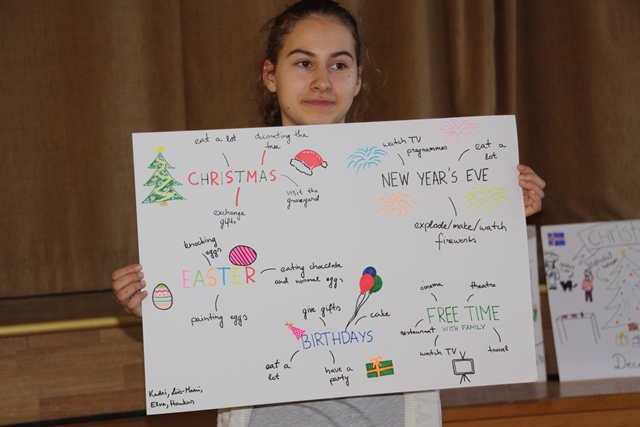 eat a lot
decorating the
tree
CHRISTMAS
visit the
graveyard
exchange
gifts
watch TV
programmes
eat a
lot
NEW YEAR'S EVE
explode/make/watch
fireworks
knocking
eggs
EASTER
eating chocolate
and normal eggs
painting eggs
give gifts
cake
BIRTHDAYS
eat a
lot
have a
party
cinema
theatre
FREE TIME
WITH FAMILY
restaurant
watch TV
travel
Kadri,
CHRIST
Dec